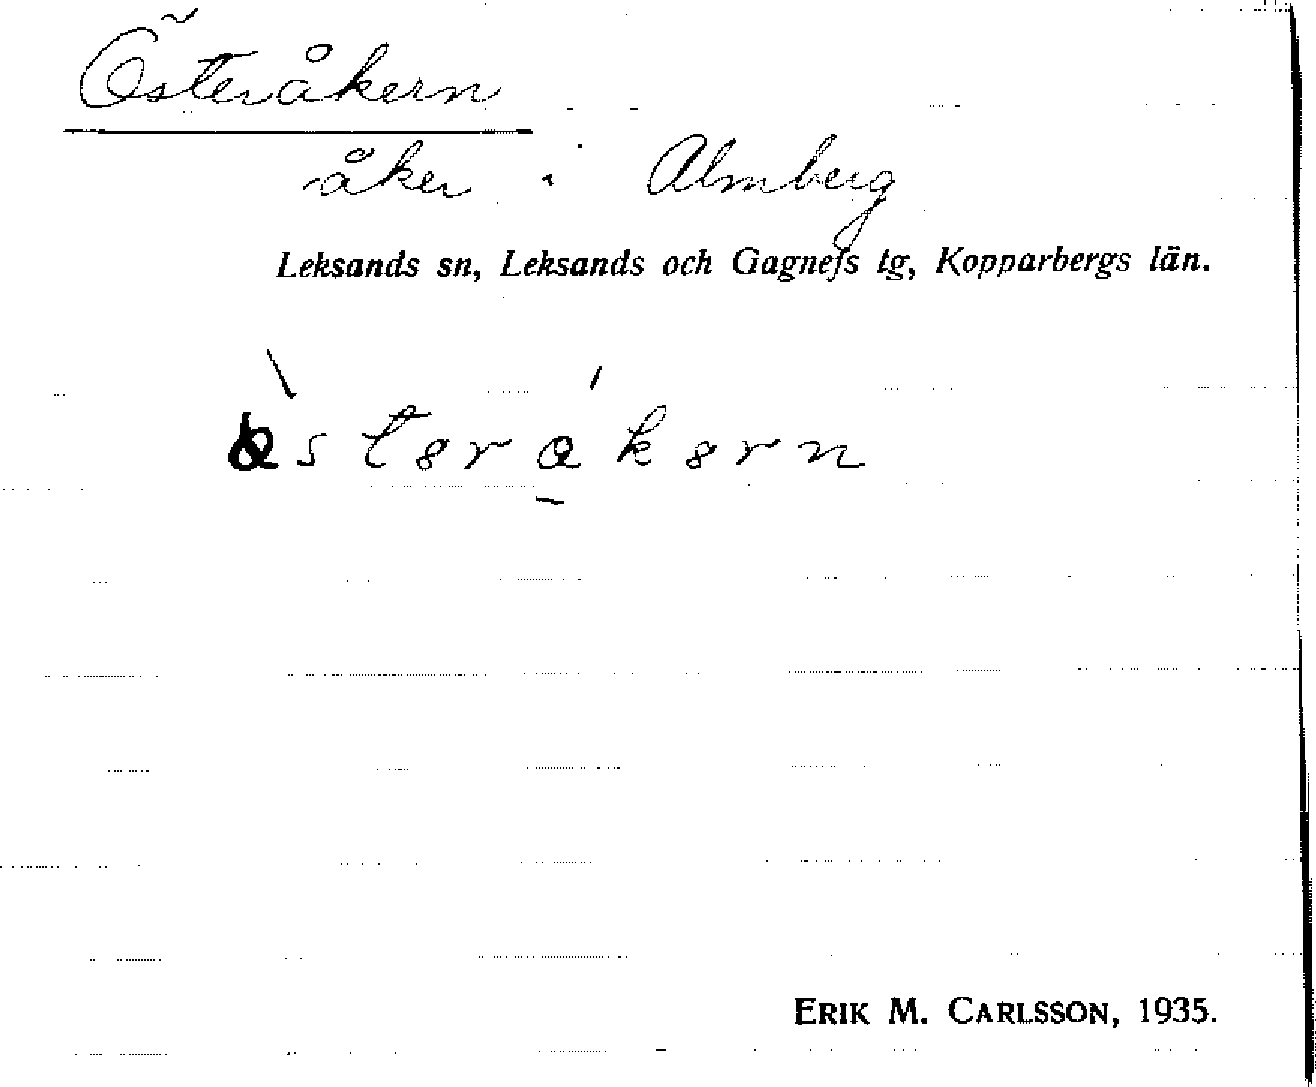 Österåkern
åker i Almberg
Leksands sn, Leksands och Gagnefs tg, Kopparbergs län.
ERIK M. CARLSSON, 1935.